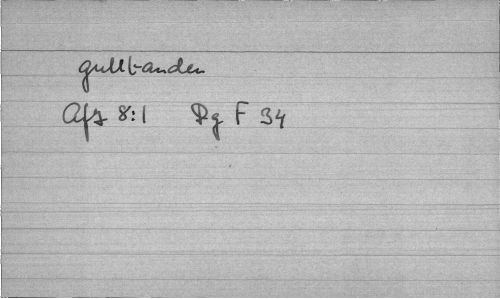 gullbanden
Afz 8:1 Rg F 34